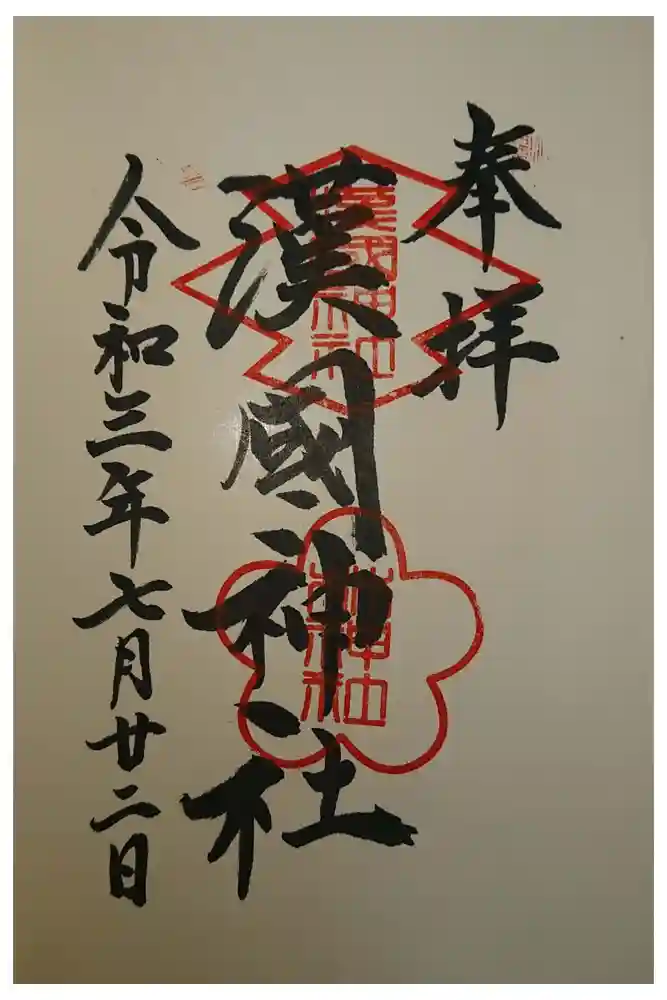 奉拝
漢國神社
令和三年七月廿二日
漢國神社
林神社